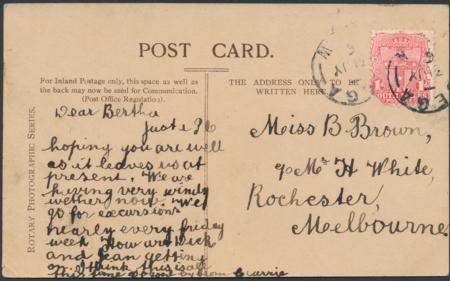 POST CARD.
For Inland Postage only, this space as well as
the back may now be used for Communication.
(Post Office Regulation).
THE ADDRESS ONLY TO BE
WRITTEN HERE.
ROTARY PHOTOGRAPHIC SERIES.
Dear Bertha
Just a P C
hoping you are well
as it leaves us at
present. We are
having very windy
wether now. We
go for excursions
nearly every friday
week How are Dick
and Jean getting
on I think this is all
this time from Carrie
Miss B Brown,
c/o Mr H White,
Rochester,
Melbourne.